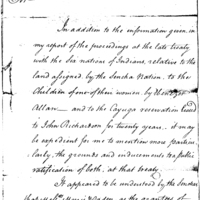 In addition to the information given in
my report of the proceedings at the late treaty
with the Six nations of Indians, relative to the
land assigned by the Seneka Nation to the
Children of one of their women by
Allan — and to the Cayuga reservation leased
to John Richardson for twenty years. it may
be expedient for me to mention more particu
larly, the grounds and inducements to a public
ratification of both, at that treaty.
It appeared to be understood by the Senekas
that as the grantee of